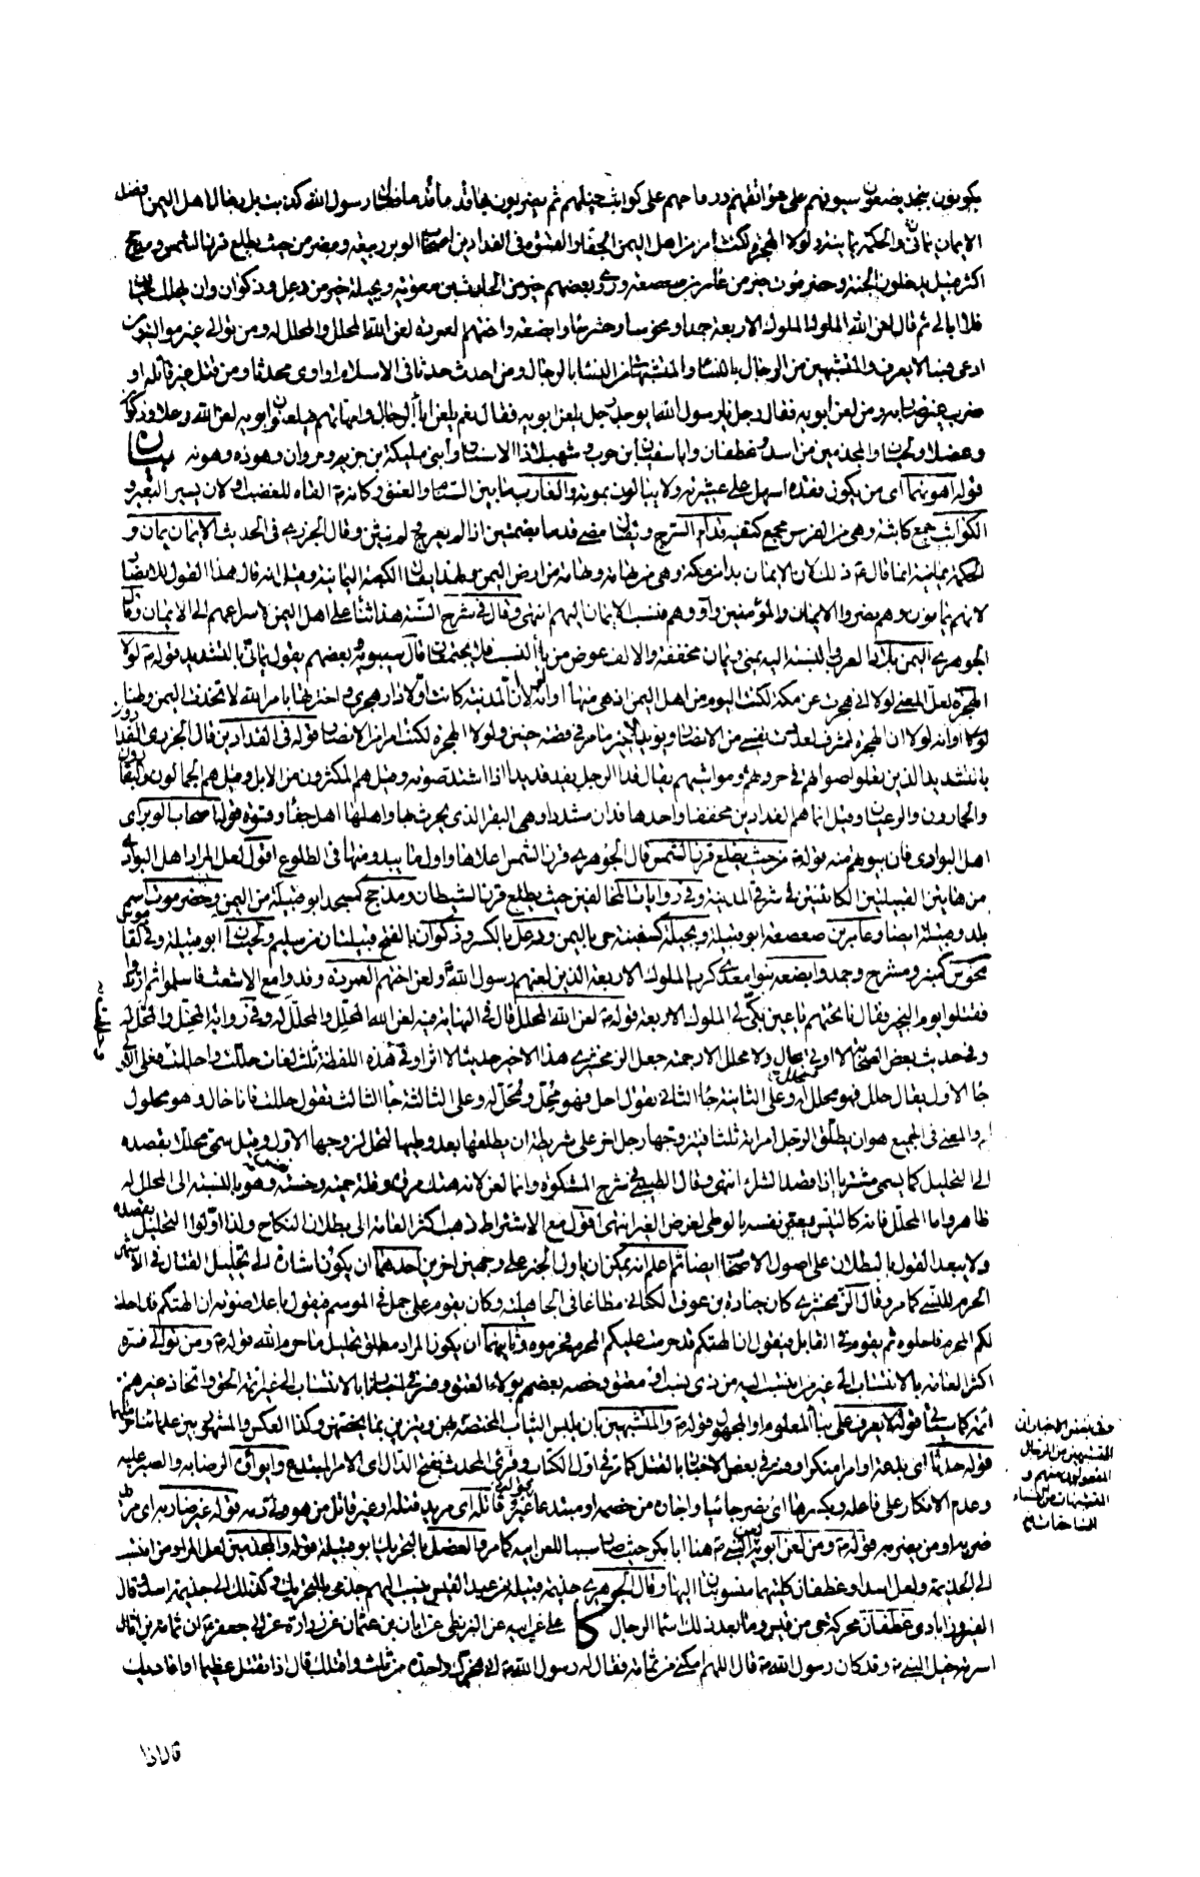 يكونون بنجد يضعون سيوفهم على عواتقهم ورماحهم على كواثب خيلهم ثم يضربون بها قدما قدما فقال رسول الله كذبت بل رجال اهل اليمن افضل
الايمان يماني والحكمة يمانية ولولا الهجرة لكنت امرء من اهل اليمن الجفاء والقسوة في الفدادين اصحاب الوبر ربيعة ومضر من حيث يطلع قرن الشمس ومذحج
اكثر قبيل يدخلون الجنة وحضرموت خير من عامر بن صعصعة وروى بعضهم خير من الحارث بن معوية وبجيلة خير من رعل وذكوان وان يهلك لحيان
فلا ابالي ثم قال لعن الله الملوك الاربعة جمدا ومخوسا ومشرحا وابضعة واختهم العمردة لعن الله المحلل والمحلل له ومن توالى غير مواليه ومن
ادعى نسبا لا يعرف والمتشبهين من الرجال بالنساء والمتشبهات من النساء بالرجال ومن احدث حدثا في الاسلام او اوى محدثا ومن قتل غير قاتله او
ضرب غير ضاربه ومن لعن ابويه فقال رجل يا رسول الله ايوجد رجل يلعن ابويه فقال نعم يلعن اباء الرجال وامهاتهم فيلعنون ابويه لعن الله رعلا وذكوان
وعضلا ولحيان والمجذمين من اسد وغطفان وابا سفيان بن حرب وشهبلا ذا الاسنان وابني مليكة بن جزيم ومروان وهوذة وهونة بيان
قوله اهونهما اى من يكون فقده اسهل على عشيرته ولا يبالون بموته والغارب ما بين السنام والعنق وكانه القاه للغضب او لان يسير البعير و
الكواثب جمع كاثبة وهي من الفرس مجمع كتفيه قدام السرج ويقال مضى قدما بضمتين اذا لم يعرج ولم ينثن وقال الجزري في الحديث الايمان يمان و
الحكمة يمانية انما قال ذلك لان الايمان بدا من مكة وهي من تهامة وتهامة من ارض اليمن ولهذا يقال الكعبة اليمانية وقيل انه قال هذا القول للانصار
لانهم يمانون وهم نصروا الايمان والمؤمنين وآووهم فنسب الايمان اليهم انتهى وقال في شرح السنة هذا ثناء على اهل اليمن لاسراعهم الى الايمان وقال
الجوهري اليمن بلاد للعرب والنسبة اليه يمنى ويمان مخففة والالف عوض من ياء النسب فلا يجتمعان قال سيبويه وبعضهم يقول يماني بالتشديد قوله لولا
الهجرة لعل المعنى لولا اني هجرت عن مكة لكنت اليوم من اهل اليمن اذ هي منها او انه لولا ان المدينة كانت اولا دار هجرتي واخترتها بامر الله لاتخذت اليمن وطنا
او انه لولا ان الهجرة اشرف لعددت نفسي من الانصار ويؤيد الاخير ما مر في قصة حنين ولولا الهجرة لكنت امرء من الانصار قوله في الفدادين قال الجزري الفدادون
بالتشديد الذين يعلو اصواتهم في حروثهم ومواشيهم يقال فد الرجل يفد فديدا اذا اشتد صوته وقيل هم المكثرون من الابل وقيل هم الجمالون والبقارون
والحمارون والرعيان وقيل انما هم الفدادين مخففا واحدها فدان مشدد وهي البقر الذي يحرث بها واهلها اهل جفاء وقسوة قوله اصحاب الوبر اى
اهل البوادى فان بيوتهم منه قوله من حيث يطلع قرن الشمس قال الجوهري قرن الشمس اعلاها واول ما يبدو منها في الطلوع اقول لعل المراد اهل البوادى
من هاتين القبيلتين الكائنتين في شرقي المدينة وفي روايات المخالفين حيث يطلع قرن الشيطان ومذحج كمسجد ابو قبيلة من اليمن وحضرموت اسم
بلد وقبيلة ايضا وعامر بن صعصعة ابو قبيلة وبجيلة كسفينة حي باليمن ورعل بالكسر وذكوان بالفتح قبيلتان من سليم ولحيان ابو قبيلة وفي القاموس
مخوس كمنبر ومشرح وجمد وابضعة بنو معدي كرب الملوك الاربعة الذين لعنهم رسول الله ولعن اختهم العمردة وفدوا مع الاشعث فاسلموا ثم ارتدوا
فقتلوا يوم النجير فقال نائحتهم يا عين بكي لي الملوك الاربعة قوله لعن الله المحلل قال في النهاية فيه لعن الله المحلل والمحلل له وفي رواية المحل والمحل له
وفي حديث بعض الصحابة لا اوتى بحال ولا محلل الا رجمته جعل الزمخشري هذا الاخير حديثا لا اثرا وفي هذه اللفظة ثلث لغات حللت واحللت وحللت فعلى الاول
جاء الاول يقال حلل فهو محلل ومحلل له وعلى الثانية جاء الثاني يقول احل فهو محل ومحل له وعلى الثالثة جاء الثالث تقول حللت فانا حال وهو محلول
له والمعنى في الجميع هو ان يطلق الرجل امراته ثلثا فيتزوجها رجل اخر على شريطة ان يطلقها بعد وطيها لتحل لزوجها الاول وقيل سمى محللا بقصده
الى التحليل كما يسمى مشتريا اذا قصد الشراء انتهى وقال الطيبي في شرح المشكوة وانما لعن لانه هتك مروة وقلة حمية وخسة نفس وهو بالنسبة الى المحلل له
ظاهر واما المحلل فانه كالتيس يعير نفسه بالوطى لغرض الغير انتهى اقول مع الاشتراط ذهب اكثر العامة الى بطلان النكاح ولذا اولوا التحليل بقصده
ولا يبعد القول بالبطلان على اصول الاصحاب ايضا ثم اعلم انه يمكن ان ياول الخبر على وجهين اخرين احدهما ان يكون اشارة الى تحليل القتال في الاشهر
الحرم للنسيء كما مر وقال الزمخشري كان جنادة بن عوف الكناني مطاعا في الجاهلية وكان يقوم على جمل في الموسم فيقول باعلا صوته ان الهتكم قد احلت
لكم المحرم فاحلوه ثم يقوم في القابل فيقول ان الهتكم قد حرمت عليكم المحرم فحرموه وثانيهما ان يكون المراد مطلق تحليل ما حرم الله قوله ومن توالى فسره
اكثر العامة بالانتساب الى غير من انتسب اليه من ذى نسب او معتق وخصه بعضهم بولاء العتق وفسر في اخبارنا بالانتساب الى غير ائمة الحق واتخاذ غيرهم
ائمة كما سيأتي قوله لا يعرف على بناء المعلوم او المجهول قوله والمتشبهين بان يلبس الثياب المختصة بهن ويتزين بما يختصهن وكذا العكس والمشهور بين علمائنا حرمتهما
قوله حدثا اى بدعة او امرا منكرا وفسر في بعض الاخبار بالقتل كما مر في اول الكتاب وقرئ المحدث بفتح الدال اى الامر المبتدع وايواؤه الرضا به والصبر عليه
وعدم الانكار على فاعله وبكسرها اى نصر جانيا واجاره من خصمه او مبتدعا قوله غير قاتله اى مريد قتله او غير قاتل من هو ولي دمه قوله غير ضاربه اى مريد
ضربه او من يضربه قوله ومن لعن ابويه لعن النبي هنا ابا بكر حيث صار سببا للعن ابيه كما مر والعضل بالتحريك ابو قبيلة قوله والمجذمين لعل المراد من انتسب
الى الجذيمة ولعل اسدا وغطفان كلتيهما منسوبتان اليها وقال الجوهري جذيمة قبيلة من عبد القيس ينسب اليهم جذمى بالتحريك وكذلك الى جذيمة اسد وقال
الفيروزآبادى غطفان محركة حي من قيس وما بعد ذلك اسماء الرجال كا علي عن ابيه عن البزنطي عن ابان بن عثمان عن زرارة عن ابي جعفر ان ثمامة بن اثال
اسرته خيل النبي وقد كان رسول الله قال اللهم امكني من ثمامة فقال له رسول الله اني مخيرك واحدة من ثلث اقتلك قال اذا تقتل عظيما او افاديك
قال اذا
وفي بعض الاخبار ان
المتشبهين من الرجال
المفعولون منهم و
المتشبهات من النساء
المساحقات منهم